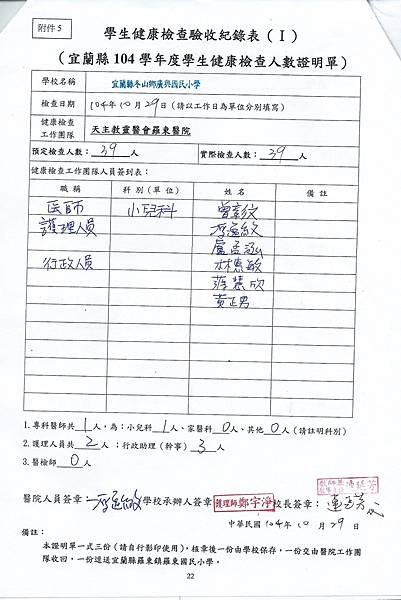 附件 5
學生健康檢查驗收紀錄表（Ⅰ）
（宜蘭縣 104 學年度學生健康檢查人數證明單）
學校名稱 宜蘭縣冬山鄉廣興國民小學
檢查日期 104年10月29日（請以工作日為單位分別填寫）
健康檢查工作團隊 天主教靈醫會羅東醫院
預定檢查人數：39 人 實際檢查人數：39 人
健康檢查工作團隊人員簽到表：
職稱 科別（單位） 姓名 備註
医師 小兒科
護理人員
行政人員 林惠敏
黃正男
1.專科醫師共1人，為：小兒科 1人、家醫科 0人、其他 0人（請註明科別）
2.護理人員共 2 人；行政助理（幹事） 3 人
3.醫檢師 0 人
醫院人員簽章： 學校承辦人簽章 護理師鄭宇淨 校長簽章：
中華民國 104年 10月 29日
備註：
本證明單一式三份（請自行影印使用），核章後一份由學校保存，一份交由醫院工作團
隊收回，一份逕送宜蘭縣羅東鎮羅東國民小學。
22